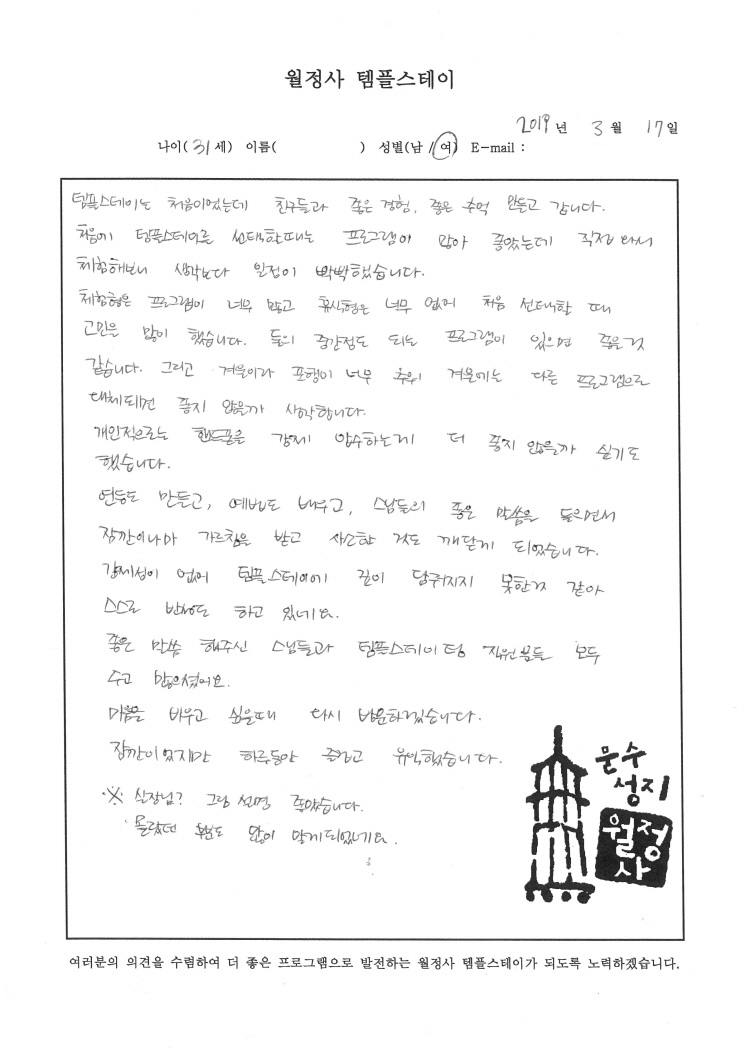 월정사 템플스테이
2019년 3월 17일
나이( 31 세) 이름( ) 성별(남 / 여) E-mail :
템플스테이는 처음이었는데 친구들과 좋은 경험, 좋은 추억 만들고 갑니다.
처음에 템플스테이를 선택할때는 프로그램이 많아 좋았는데 직접 와서
체험해보니 생각보다 일정이 빡빡했습니다.
체험형은 프로그램이 너무 많고 휴식형은 너무 없어 처음 선택할 때
고민을 많이 했습니다. 둘의 중간정도 되는 프로그램이 있으면 좋을것
같습니다. 그리고 겨울이라 포행이 너무 추워 겨울에는 다른 프로그램으로
대체되면 좋지 않을까 생각합니다.
개인적으로는 핸드폰을 강제 압수하는게 더 좋지 않을까 싶기도
했습니다.
연등도 만들고, 예법도 배우고, 스님들의 좋은 말씀을 들으면서
잠깐이나마 가르침을 받고 사소한 것도 깨닫게 되었습니다.
강제성이 없어 템플스테이에 깊이 담궈지지 못한거 같아
스스로 반성도 하고 있네요.
좋은 말씀 해주신 스님들과 템플스테이 팀 직원분들 모두
수고 많으셨어요.
마음을 비우고 싶을때 다시 방문하겠습니다.
잠깐이었지만 하루동안 즐겁고 유익했습니다.
※ 실장님? 그림 설명 좋았습니다.
몰랐던 부분도 많이 알게되었네요.
문수
성지
월정
사
여러분의 의견을 수렴하여 더 좋은 프로그램으로 발전하는 월정사 템플스테이가 되도록 노력하겠습니다.